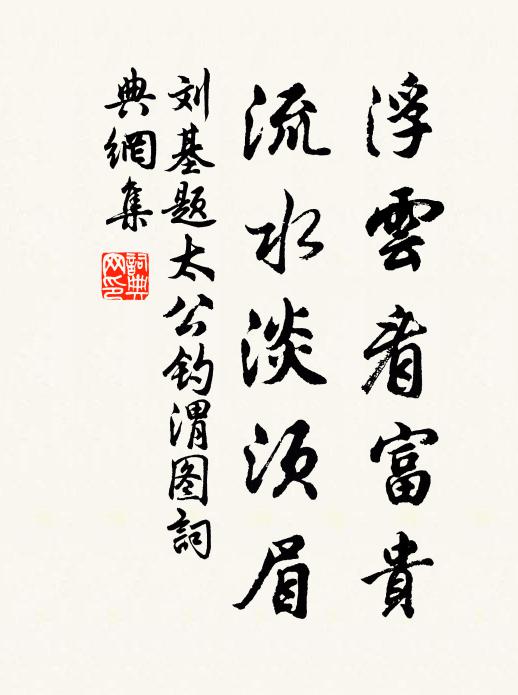 浮雲看富貴
流水淡须眉
刘基题太公钓渭图詞
典網集
詞典网印